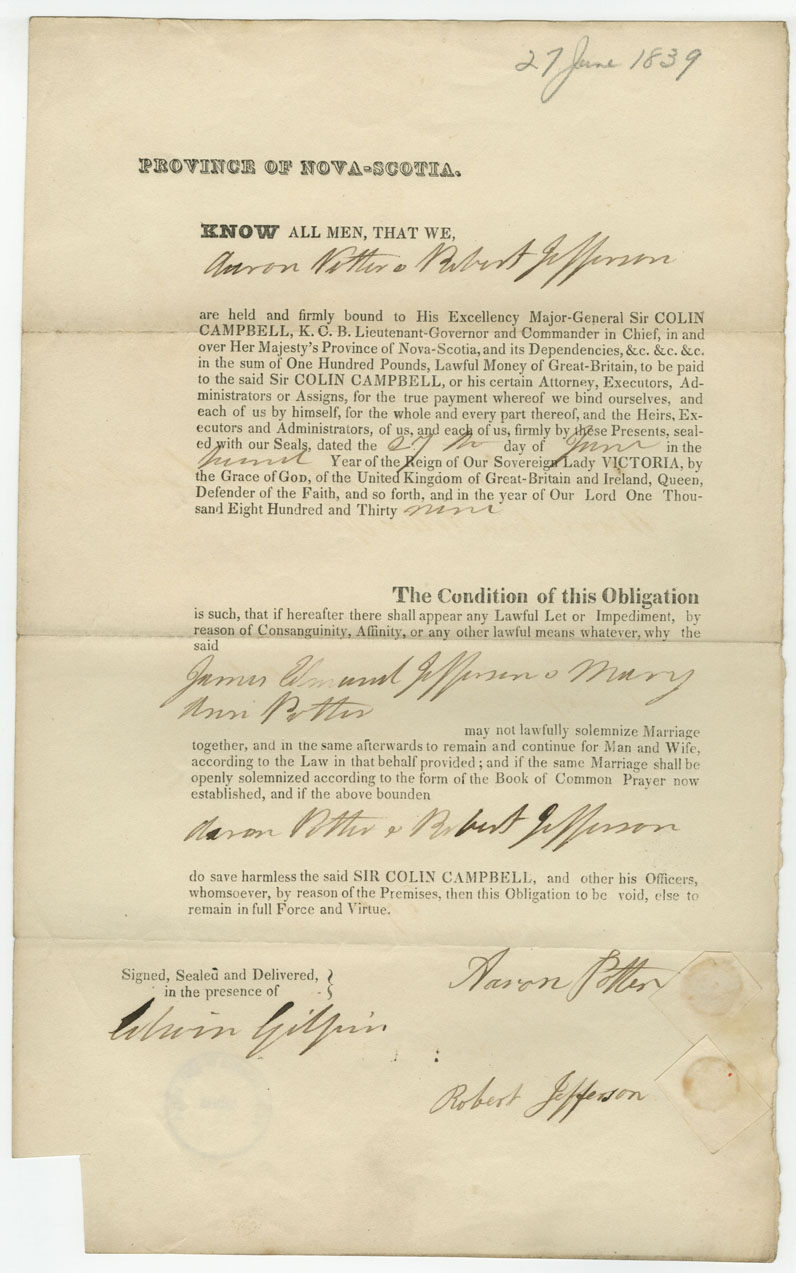 27 June 1839
PROVINCE OF NOVA-SCOTIA.
KNOW ALL MEN, THAT WE,
Aaron Potter & Robert Jefferson
are held and firmly bound to His Excellency Major-General Sir COLIN
CAMPBELL, K. C. B. Lieutenant-Governor and Commander in Chief, in and
over Her Majesty's Province of Nova-Scotia, and its Dependencies, &c. &c. &c.
in the sum of One Hundred Pounds, Lawful Money of Great-Britain, to be paid
to the said Sir COLIN CAMPBELL, or his certain Attorney, Executors, Ad-
ministrators or Assigns, for the true payment whereof we bind ourselves, and
each of us by himself, for the whole and every part thereof, and the Heirs, Ex-
ecutors and Administrators, of us, and each of us, firmly by these Presents, seal-
ed with our Seals, dated the 27th day of June in the
Year of the Reign of Our Sovereign Lady VICTORIA, by
the Grace of GOD, of the United Kingdom of Great-Britain and Ireland, Queen,
Defender of the Faith, and so forth, and in the year of Our Lord One Thou-
sand Eight Hundred and Thirty nine
The Condition of this Obligation
is such, that if hereafter there shall appear any Lawful Let or Impediment, by
reason of Consanguinity, Affinity, or any other lawful means whatever, why the
said
James Edmund Jefferson & Mary
Ann Potter
may not lawfully solemnize Marriage
together, and in the same afterwards to remain and continue for Man and Wife,
according to the Law in that behalf provided; and if the same Marriage shall be
openly solemnized according to the form of the Book of Common Prayer now
established, and if the above bounden
Aaron Potter & Robert Jefferson
do save harmless the said SIR COLIN CAMPBELL, and other his Officers,
whomsoever, by reason of the Premises, then this Obligation to be void, else to
remain in full Force and Virtue.
Signed, Sealed and Delivered,
in the presence of
Aaron Potter
Edwin Gilpin
Robert Jefferson